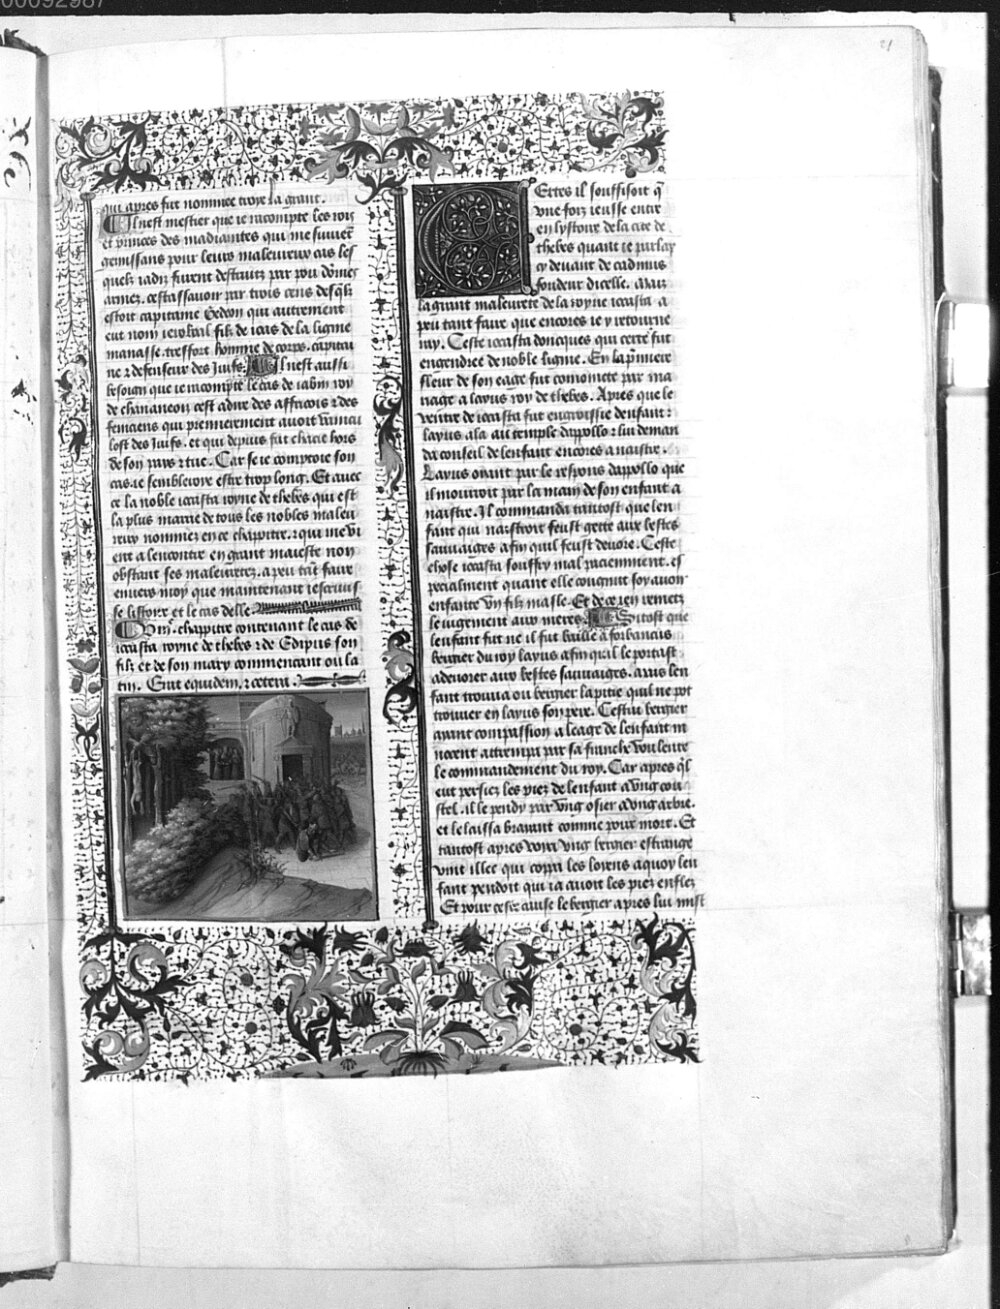 00092987
21
qui apres fut nommee troye la grant.
Il nest mestier que ie racompte les roys
et princes des madianites qui me suiuet
gemissans pour leurs maleureux cas les
quelz iadiz furent destruiz par pou domes
armez. cestassauoir par trois cens desqlz
estoit capitaine Gedeon qui autrement
eut nom ierobal filz de ioas de la ligne
manasse. tresfort homme de corps. capitai
ne ⁊ defenseur des Juifs. Il nest aussi
besoign que ie racompte le cas de iabin roy
de chananeon cest adire des assacois ⁊ des
feniciens qui premierement auoit vaincu
lost des Juifs. et qui depuis fut chacie hors
de son pays ⁊ tue. Car se ie comptoie son
cas ie sembleroye estre trop long. Et auec
ce la noble iocasta royne de thebes qui est
la plus marrie de tous les nobles maleu
reux nommez en ce chappitre. ⁊ qui me vi
ent a lencontre en grant maieste non
obstant ses maleuretez. a peu tat faire
enuers moy que maintenant iescriuis
se listoire et le cas delle
viiie. chappitre contenant le cas de
iocasta royne de thebes ⁊ de Edipus son
filz et de son mary commencant ou la
tin. Erat equidem. ⁊ cetera.
Certes il souffisoit q
vne foiz ieusse entre
en lystoire de la cite de
thebes quant ie parlay
cy deuant de cadmus
fondeur dicelle. Maiz
la grant maleurete de la royne iocasta a
peu tant faire que encores ie y retourne
ray. Ceste iocasta doncques qui certes fut
engendree de noble ligne. En la pmiere
fleur de son eage fut coniointe par ma
riage a layus roy de thebes. Apres que le
ventre de iocasta fut engroissie denfant:
layus ala au temple dappollo ⁊ lui deman
da conseil de lenfant encores a naistre.
Layus oiant par le respons dappollo que
il mourroit par la main de son enfant a
naistre. Il commanda tantost que len
fant qui naistroit feust gette aux bestes
sauuaiges afin quil feust deuore. Ceste
chose iocasta souffry mal paciemment. es
pecialment quant elle congnut soy auoir
enfante vn filz masle. Et de ce ien remetz
le iugement aux meres. Sitost que
lenfant fut ne il fut baille a forbancius
bergier du roy layus afin quil le portast
a deuorer aux bestes sauuaiges. Mais len
fant trouua ou bergier la pitie quil ne pot
trouuer en layus son pere. Cestui bergier
ayant compassion a leage de lenfant in
nocent attrempa par sa franche voulente
le commandement du roy. Car apres ql
eut persiez les piez de lenfant a vng cou
stel. il le pendy par vng osier a vng arbre.
et le laissa brayant comme pour mort. Et
tantost apres vng bergier estrange
vint illec qui coppa les loyens a quoy len
fant pendoit qui ia auoit les piez enflez
Et pour ceste cause le bergier apres lui mist